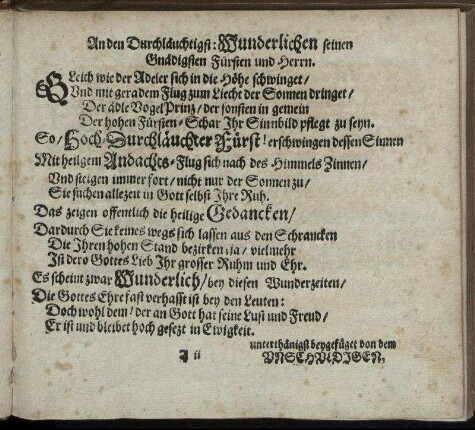 An den Durchläuchtigst: Wunderlichen seinen
Gnädigsten Fürsten und Herrn.
GLeich wie der Adeler sich in die Höhe schwinget/
Vnd mit geradem Flug zum Liecht der Sonnen dringet/
Der ädle Vogel Prinz/ der sonsten in gemein
Der hohen Fürsten-Schar Ihr Sinnbild pflegt zu seyn.
So/ Hoch-Durchläuchter Fürst! erschwingen dessen Sinnen
Mit heilgem Andachts-Flug sich nach des Himmels Zinnen/
Vnd steigen immer fort/ nicht nur der Sonnen zu/
Sie suchen allezeit in Gott selbst Ihre Ruh.
Das zeigen offentlich die heilige Gedancken/
Dardurch Sie keines wegs sich lassen aus den Schrancken
Die Ihren hohen Stand bezirken; ja/ vielmehr
Ist dero Gottes Lieb Ihr grosser Ruhm und Ehr.
Es scheint zwar Wunderlich/ bey diesen Wunderzeiten/
Die Gottes Ehre fast verhasst ist bey den Leuten:
Doch wohl dem/ der an Gott hat seine Lust und Freud/
Er ist und bleibet hoch gesezt in Ewigkeit.
unterthänigst beygefüget von dem
VNSCHVLDIGEN.
ii